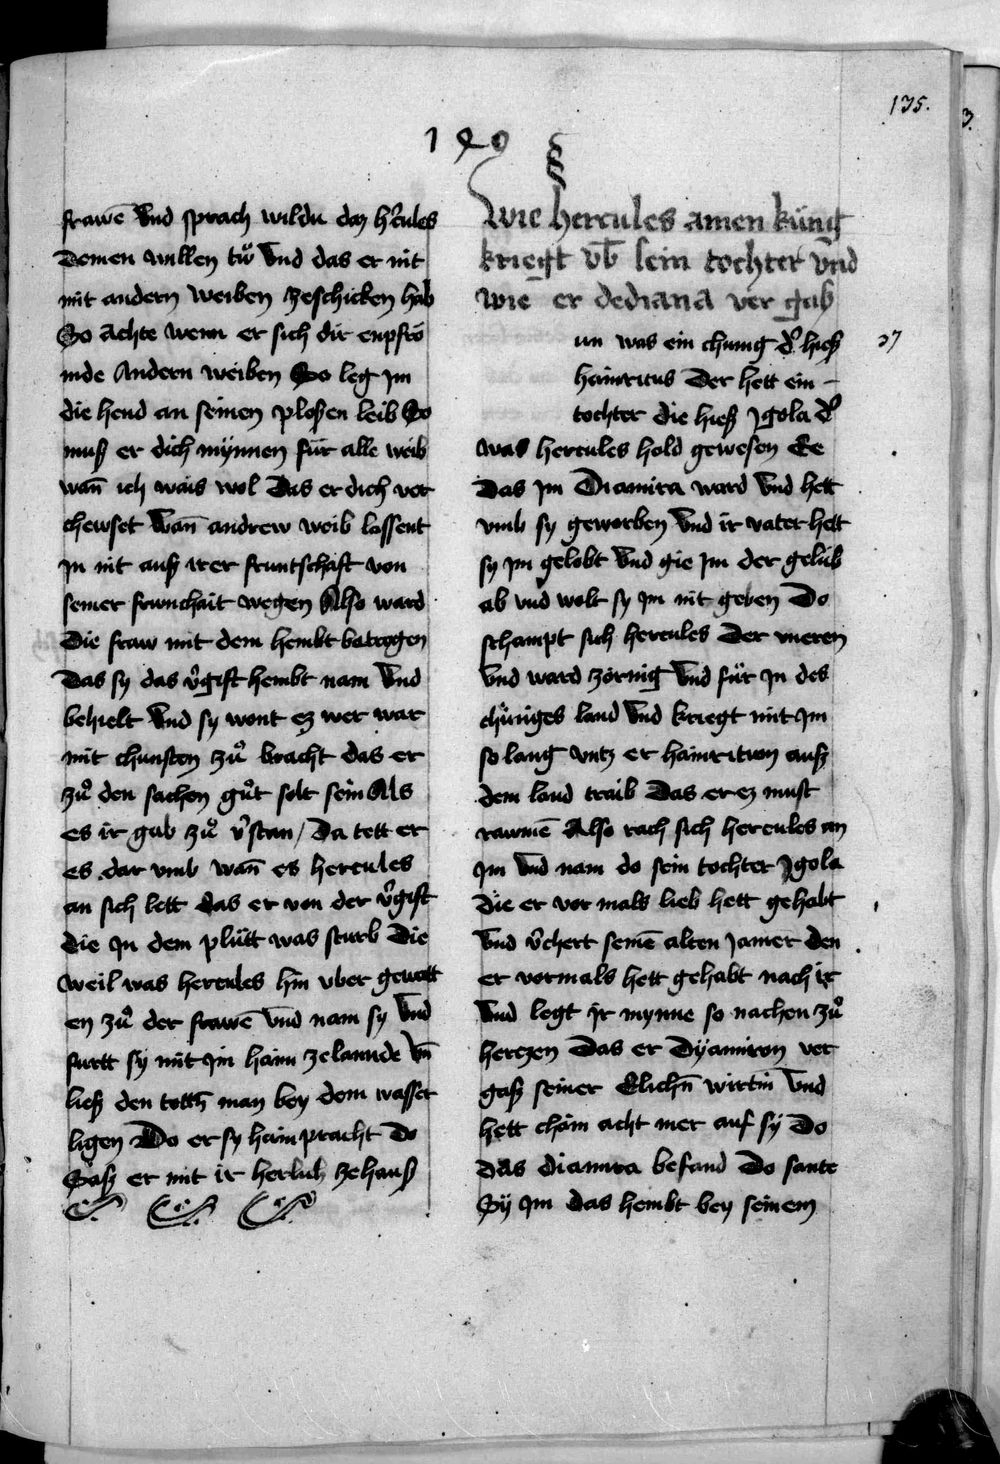 135.
149
frawē Vnd sprach wildu daz h'cules
Deinen willen tuͦ Vnd das er nit
mit andern weiben zeschicken hab
So achte wenn er sich dir enpfrö
mde Andern weiben So leg Im
die hend an seinen ploßen leib So
muß er dich mÿnnen fuͤr alle weib
wañ ich wais wol Das er dich ver
chewset Wañ andrew weib lassent
In nit auß irer fruntschaft von
seiner frumchait wegen Also ward
Die fraw mit dem hembt betrogen
Das sy das v'gift hembt nam Vnd
behielt Vnd sy wont ez wer war
mit chunsten zuͦ bracht das er
zuͦ den sachen guͦt solt sein Als
es ir gab zuͦ v'stan / Da tett er
es dar vmb wañ es hercules
an sich lett das er von der v'gift
die In dem pluͤtt was sturb Die
weil was hercules hin vber gewatt
en zuͦ der frawē Vnd nam sy Vnd
furtt sy mit Im haim ze lannde Vñ
ließ den totth man bey dem wasser
ligen Do er sy haim pracht do
Saß er mit ir herlich ze hauß
Wie hercules ainen küng
kriegt vb̄ sein tochter vnd
wie er dediana ver gab
un was ein chunig d' hieß
37
hainritus Der hett ein –
tochter die hieß Jgola d'
was hercules hold gewesen Ee
Das Im Diamira ward Vnd hett
vmb sy geworben Vnd ir vater hett
sy Im gelobt Vnd gie Im der gelüb
ab vnd wolt sy Im nit geben Do
schampt sich hercules Der meren
Vnd ward zörnig Vnd fuͤr In des
chüniges land Vnd kriegt mit Im
so lang vntz er hainritum auß
dem land traib Das er ez must
rawmē Also rach sich hercules an
Im Vnd nam do sein tochter Jgola
die er vor mals lieb hett gehabt
Vnd v'chert seinē alten Jamer den
er vormals hett gehabt nach ir
Vnd legt Ir mynne so nachen zuͦ
herczen Das er Dÿamiron ver
gaß seiner Elichñ wirtin Vnd
hett chain acht mer auf sy Do
das diamira befand Do sante
Sÿ Im das hembt bey seinem